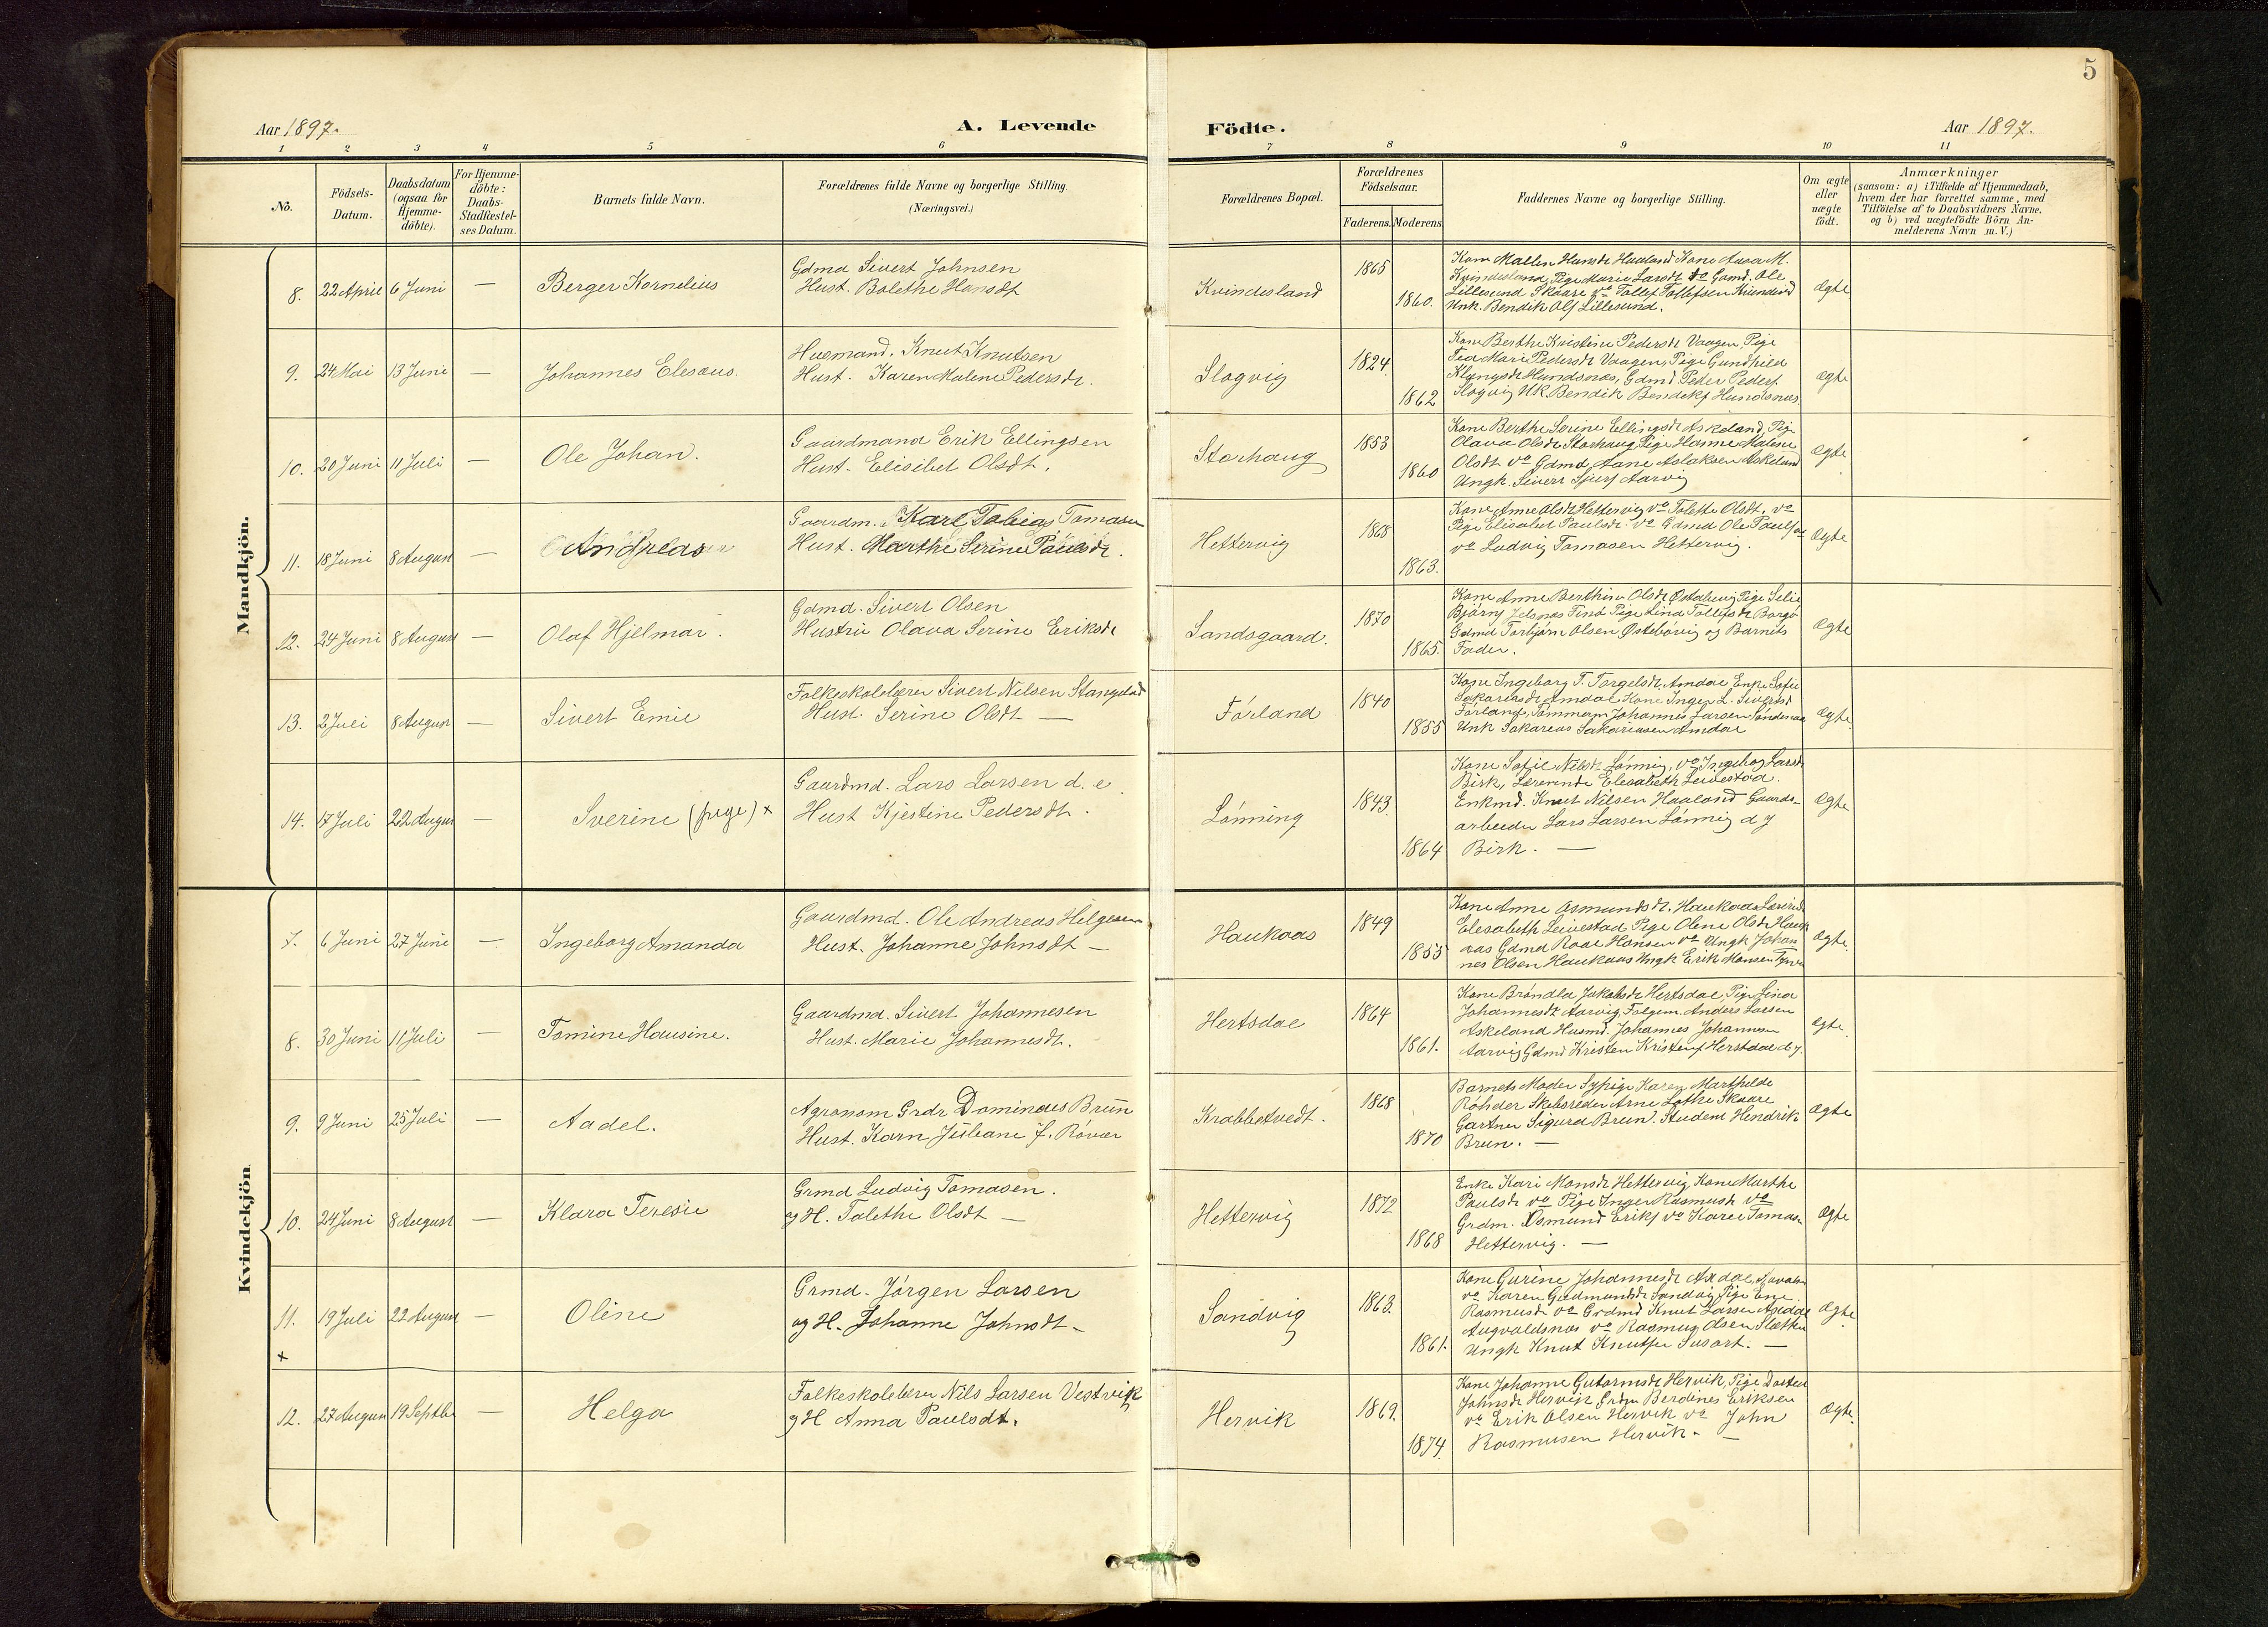 5
Aar 1897.
A. Levende
Födte.
Aar 1897.
1 2 3 4 5 6 7 8 9 10 11
No.
Födsels-
Datum.
Daabsdatum
(ogsaa for
Hjemme-
döbte).
For Hjemme-
döbte:
Daabs-
Stadfæstel-
ses Datum.
Barnets fulde Navn.
Forældrenes fulde Navne og borgerlige Stilling.
(Næringsvei.)
Forældrenes Bopæl.
Forældrenes
Födselsaar.
Faderens. Moderens
Faddernes Navne og borgerlige Stilling.
Om ægte
eller
uægte
födt.
Anmærkninger
(saasom: a) i Tilfælde af Hjemmedaab,
hvem der har forrettet samme, med
Tilföielse af to Daabsvidners Navne.
og b) ved uægtefödte Börn An-
melderens Navn m. V.)
Mandkjön.
8. 22 April 6 Juni — Berger Kornelius
Gdmd Sivert Johnsen
Hust. Bolethe Hansdt
Kvindesland
1865
1860.
Kone Mallen Hansdt Haaland Kone Anna M.
Kvindesland, Pige Marie Larsdt do Gamd. Ole
Lillesund Skaare vo Tollef Tollefsen
Unk. Bendik Olsf Lillesund.
Ægte
9. 24 Mai 13 Juni — Johannes Elesæus.
Husmand. Knut Knutsen
Hust. Karen Malene Pedersdt.
Slogvig
1824
1862
Kone Berthe Kristine Pedersdt Vaagen, Pige
Tea Marie Pedersdt Vaagen, Pige Gundhild
Hundsnæs, Gdmd. Peder Pedersf
Slogvig UK. Bendik Bendikf Hundsnæs.
Ægte
10. 20 Juni 11 Juli — Ole Johan.
Gaardmand Erik Ellingsen
Hust. Elisibet Olsdt.
Storhaug
1853
1860
Kone Berthe Serine Ellingsdt Askeland, Pige
Olava Olsdt Storhaug, Pige Hanne Malene
Olsdt vo Gdmd, Aane Aslaksen Askeland
Ungk. Sivert Sjurf Aarvig
Ægte
11. 18 Juni 8 August — Andreas
Gaardm. Karl Tobias Tomasen
Hust. Marthe Serine Paulsdt.
Hettervig
1868
1863.
Kone Anne Olsdt Hettervig vo Tolette Olsdt, vo
Pige Elisabet Paulsdt vo Gdmd Ole Paulsen
vo Ludvig Tomasen Hettervig.
Ægte
12. 24 Juni 8 August — Olaf Hjelmar.
Gdmd. Sivert Olsen
Hustru Olava Serine Eriksdt
Sandsgaard.
1870
1865.
Kone Anne Berthine Olsdt Østebövig Pige Selie
Björnf Jelsnæs Pige Lina Tollefsdt Borgö
Gdmd Torbjörn Olsen Østebövig og Barnets
Fader.
Ægte
13. 2 Juli 8 August — Sivert Emil
Folkeskolelærer Sivert Nilsen Stangeland
Hust. Serine Olsdt —
Förland
1840
1855
Kone Ingeborg T. Torgelsdt. Amdal Enke Sofie
Sakariasdt Amdal Kone Inger L. Sivertsdt
Förland, Tömmerm Johannes Larsen
Unk Sakarias Sakariasen Amdal
Ægte
14. 17 Juli 22 August — Sverine (pige) x
Gaardmd. Lars Larsen d. e.
Hust Kjestine Pedersdt.
Lönning
1843
1864
Kone Sofie Nilsdt Lönnig, vo Ingeborg Larsdt
Birk, Lærerinde Elesabeth Leivestad.
Enkmd. Knut Nilsen Haaland Gaards-
arbeider Lars Larsen Lönnig d y
Birk. —
Ægte
Kvindekjön
7. 6 Juni 27 Juni — Ingeborg Amanda
Gaardmd. Ole Andreas Helgesen
Hust. Johanne Johnsdt —
Haukaas
1849
1855
Kone Anne Osmundsdt. Haukaas Lærerinde
Elesabeth Leivestad Pige Olene Olsdt Hauk
aas Gdmd Roal Hansen vo Ungk Johan
nes Olsen Haukaas Ungk Erik Monsen
Ægte.
8. 30 Juni 11 Juli — Tomine Hansine.
Gaardmd. Sivert Johannesen
Hust. Marie Johannesdt.
Hertsdal
1864
1861.
Kone Bröndla Jakobsdt Hertsdal, Pige Lina
Johannesdt Aarvig, Folgem. Anders Larsen
Askeland Husmd. Johannes Johannesen
Aarvig Gdmd Kristen Kristenf Herstdal d y.
Ægte
9. 9 Juni 25 Juli — Aadel.
Agronom Grdr Domindes Brun
Hust. Karn Juliane f. Rövær
Krabbetvedt.
1868
1870
Barnets Moder Sypige Karen Marthilde
Röhder Skibsreder Arne Lothe Skaare
Gartner Sigurd Brun. Student Hendrik
Brun. —
Ægte
10. 24 Juni 8 August — Klara Teresie
Grmd Ludvig Tomasen.
og H. Tolethe Olsdt —
Hettervig
1872
1868
Enke Kari Monsdt Hettervig, Kone Marthe
Paulsdt vo Pige Inger Rasmusdt vo
Grdm. Osmund Eriksf vo Karel Tomas.
Hettervig. —
Ægte
11. 19 Juli 22 August — Oline
x
Grmd. Jörgen Larsen
og H. Johanne Johnsdt —
Sandvig
1863.
1861.
Kone Gurine Johannesdt
vo Karen Gudmundsdt Sandvig, Pige
Rasmusdt vo Grdmd Knut Larsen
Augvaldsnæs vo Rasmus Olsen
Ungk Knut Knutsen Susort. —
Ægte
12. 27 August 19 Septbr — Helga
Folkeskolelærer Nils Larsen Vestvik
og H Anna Paulsdt.
Hervik
1869.
1874.
Kone Johanne Gutormsdt Hervik, Pige
Johnsdt Hervik Grdm Berdines Eriksen
vo Erik Olsen Hervik vo John
Rasmusen Hervik. —
Ægte.